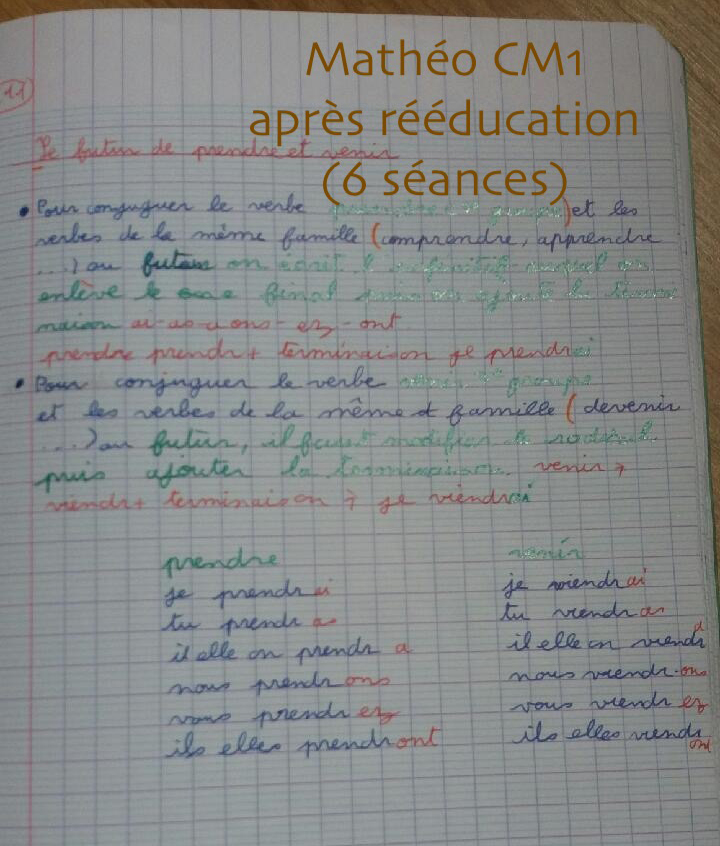 Mathéo CM1
après rééducation
(6 séances)
11
Le futur de prendre et venir
• Pour conjuguer le verbe groupe) et les
verbes de la même famille (comprendre, apprendre
...) au futur on écrit l' infinitif auquel on
enlève le e final puis on ajoute la termi
naison ai-as-a ons-ez-ont
prendre prendr+ terminaison je prendrai
• Pour conjuguer le verbe venir groupe
et les verbes de la même famille (devenir
...) au futur, il faut modifier le radical
puis ajouter la terminaison. venir →
viendr+ terminaison → je viendrai
prendre
je prendrai
tu prendras
il elle on prendra
nous prendrons
vous prendrez
ils elles prendront
venir
je viendrai
tu viendras
il elle on viendra
nous viendrons
vous viendrez
ils elles viendront